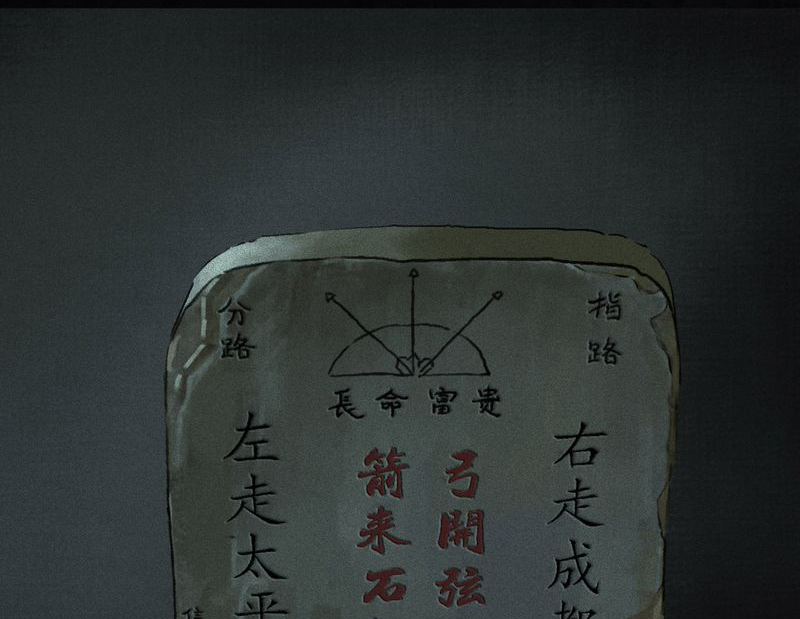 指路
分路
長命富贵
右走成柳
弓開弦
箭来石
左走太平
信